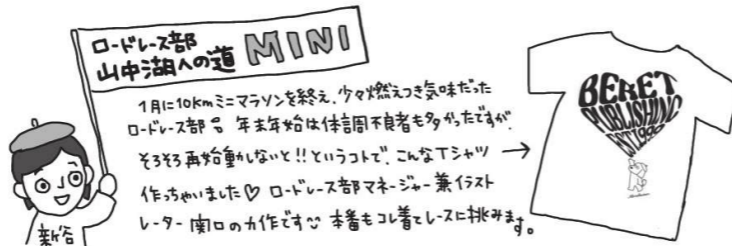 ロードレース部
山中湖への道 MINI
1月に10kmミニマラソンを終え、少々燃えつき気味だった
ロードレース部。年末年始は体調不良者も多かったですが、
そろそろ再始動しないと!!というコトで、こんなTシャツ →
作っちゃいました♡ ロードレース部マネージャー兼イラスト
レーター 関口の力作です 本番もコレ着てレースに挑みます。
新谷
BERET
PUBLISHING
EST.1998